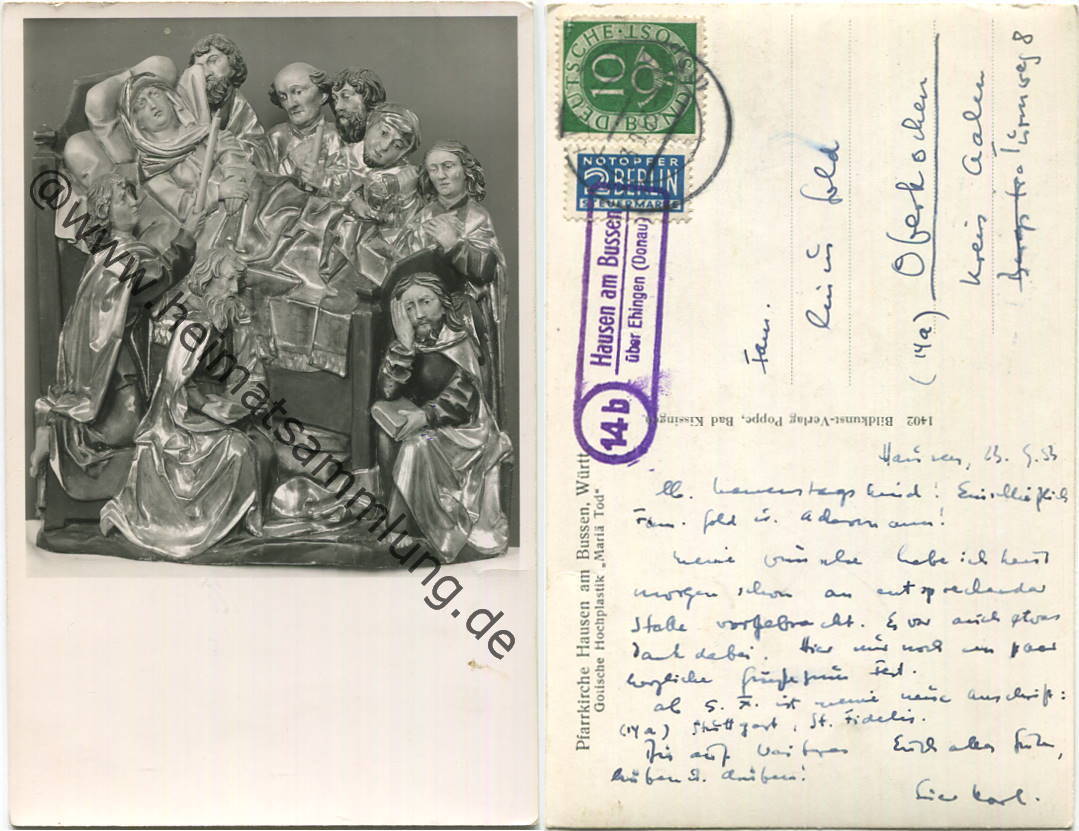 @www.heimatsammlung.de
DEUTSCHE BUNDESPOST
10
NOTOPFER
2 BERLIN
STEUERMARKE
14b
Hausen am Bussen
über Ehingen (Donau)
Fam.
Gold
(14a) Oberkochen
Kreis Aalen
Bergstraße Turmweg 8
1402 Bildkunst-Verlag Poppe, Bad Kissingen
Pfarrkirche Hausen am Bussen, Württ
Gotische Hochplastik „Mariä Tod"
Hausen, 23. 9. 53
lb. Namenstagskind! Einschließlich
Fam. Gold u.
Meine Wünsche habe ich heut
morgen schon an entsprechender
Stelle vorgebracht. Es war auch etwas
Dank dabei. Hier nur noch ein paar
herzliche Grüße zum Fest.
Ab 5. X. ist meine neue Anschrift:
(14a) Stuttgart, St. Fidelis.
Bis auf weiteres Euch alles Gute,
hüben u. drüben!
Euer Karl.